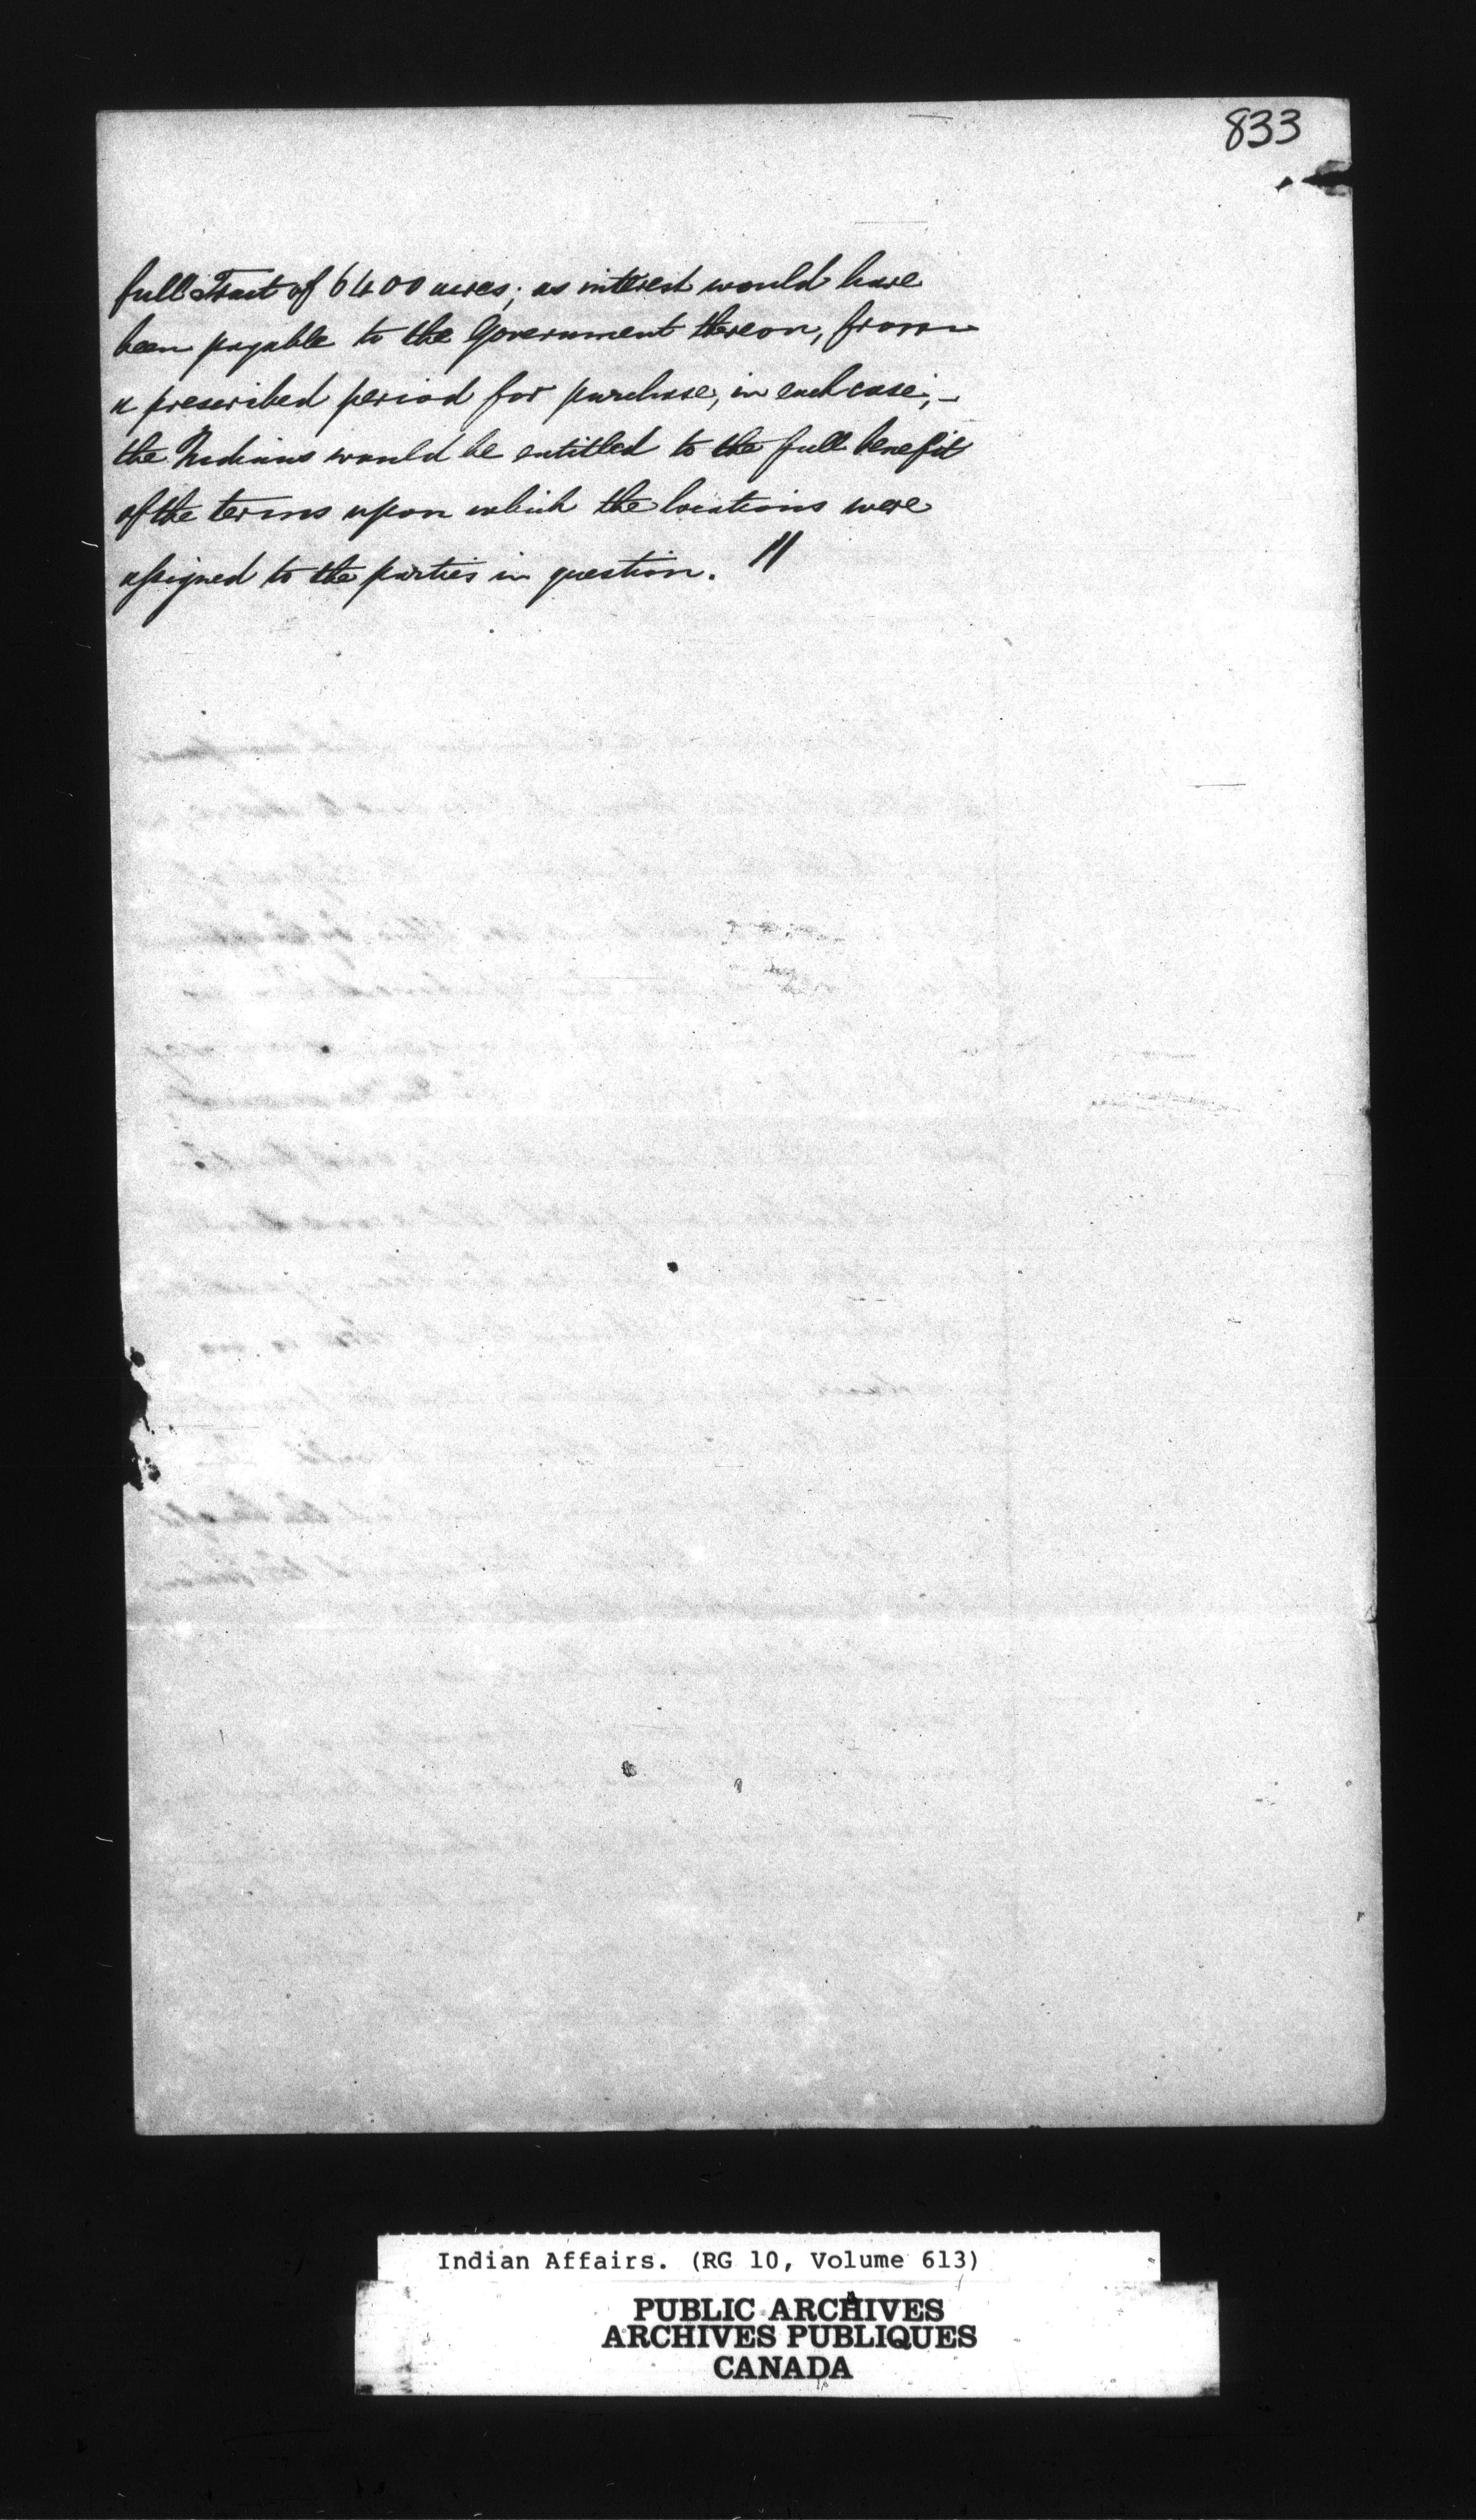 833
full Tract of 6400 acres; as interest would have
been payable to the Government thereon, from
a prescribed period for purchase, in each case; –
the Indians would be entitled to the full benefit
of the terms upon which the locations were
assigned to the parties in question. "
Indian Affairs. (RG 10, Volume 613)
PUBLIC ARCHIVES
ARCHIVES PUBLIQUES
CANADA